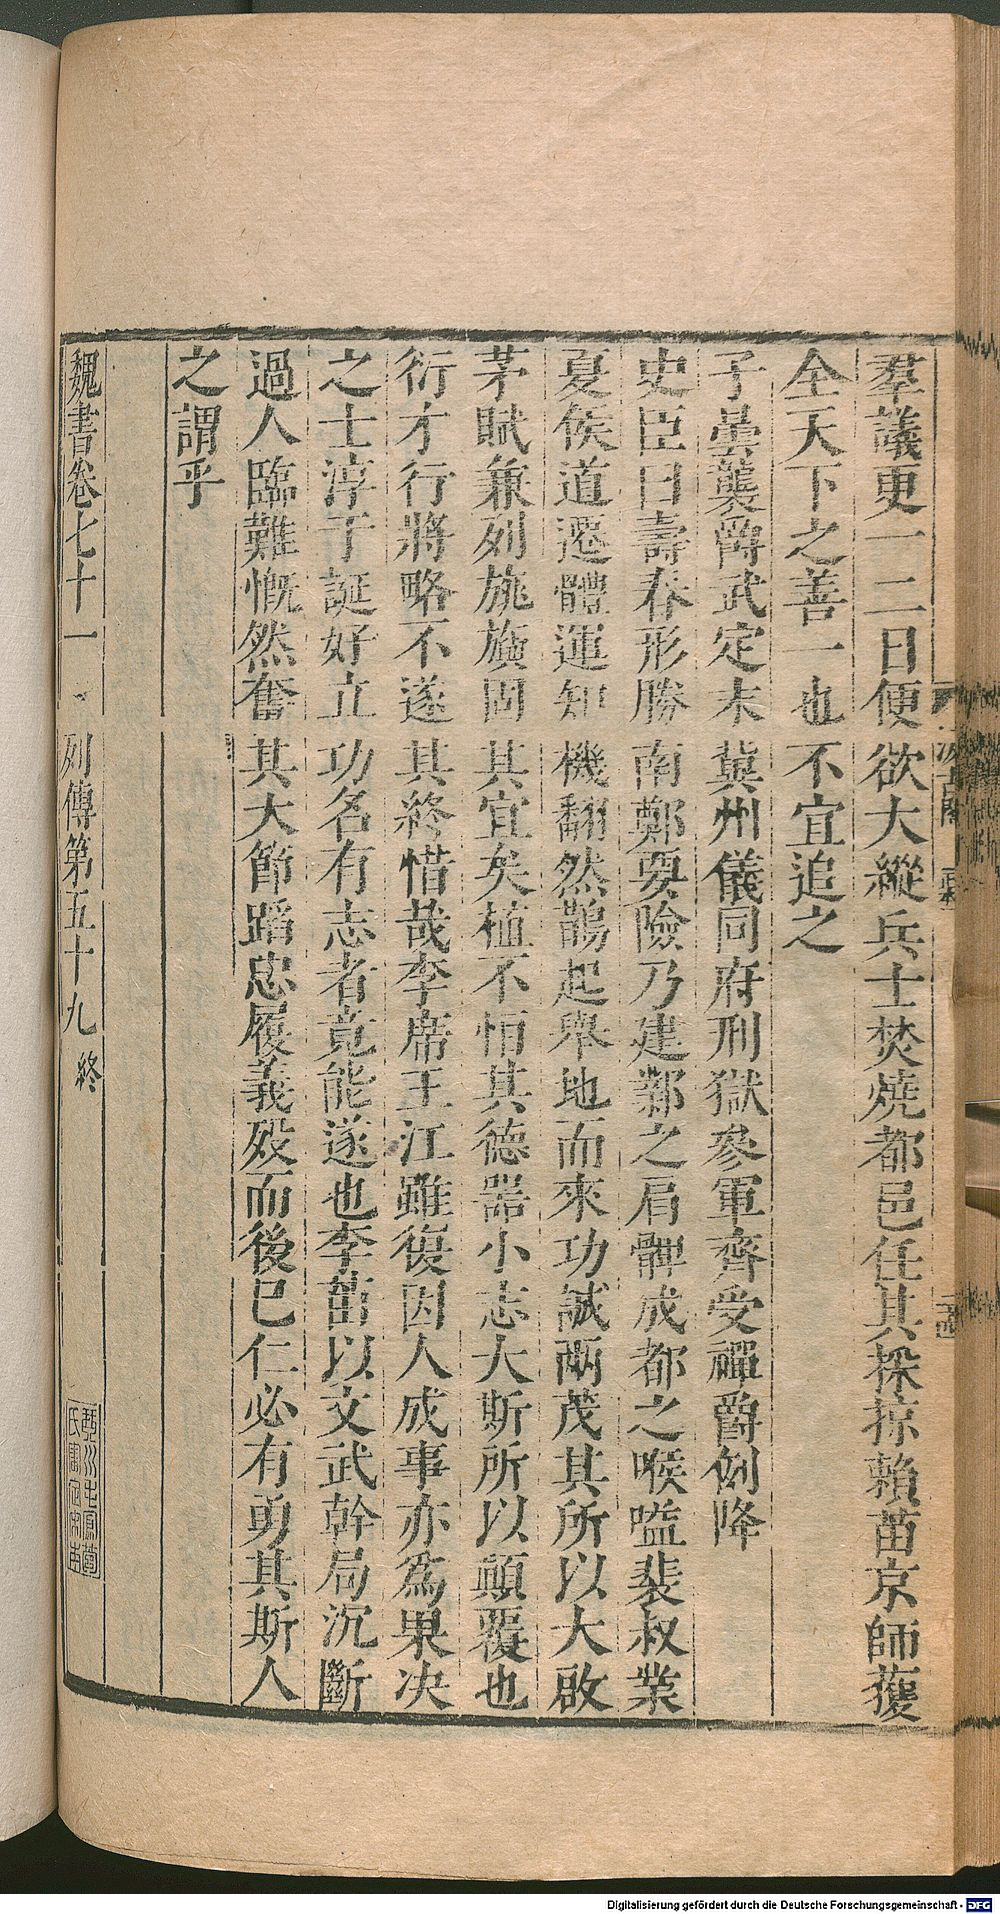 羣議更一二日便欲大縱兵士焚燒都邑任其採掠賴苗京師獲
全天下之善一也不宜追之
子曇襲爵武定末冀州儀同府刑獄參軍齊受禪爵例降
史臣曰壽春形勝南鄭要險乃建鄴之肩髀成都之喉嗌裴叔業
夏侯道遷體運知機翻然鵲起舉地而來功誠兩茂其所以大啟
茅賦兼列旐旟固其宜矣植不恒其德器小志大斯所以顛覆也
衍才行將略不遂其終惜哉李席王江雖復因人成事亦為果決
之士淳于誕好立功名有志者竟能遂也李苗以文武幹局沉斷
過人臨難慨然奮其大節蹈忠履義歿而後已仁必有勇其斯人
之謂乎
魏書卷七十一 列傳第五十九 終
Digitalisierung gefördert durch die Deutsche Forschungsgemeinschaft - DFG